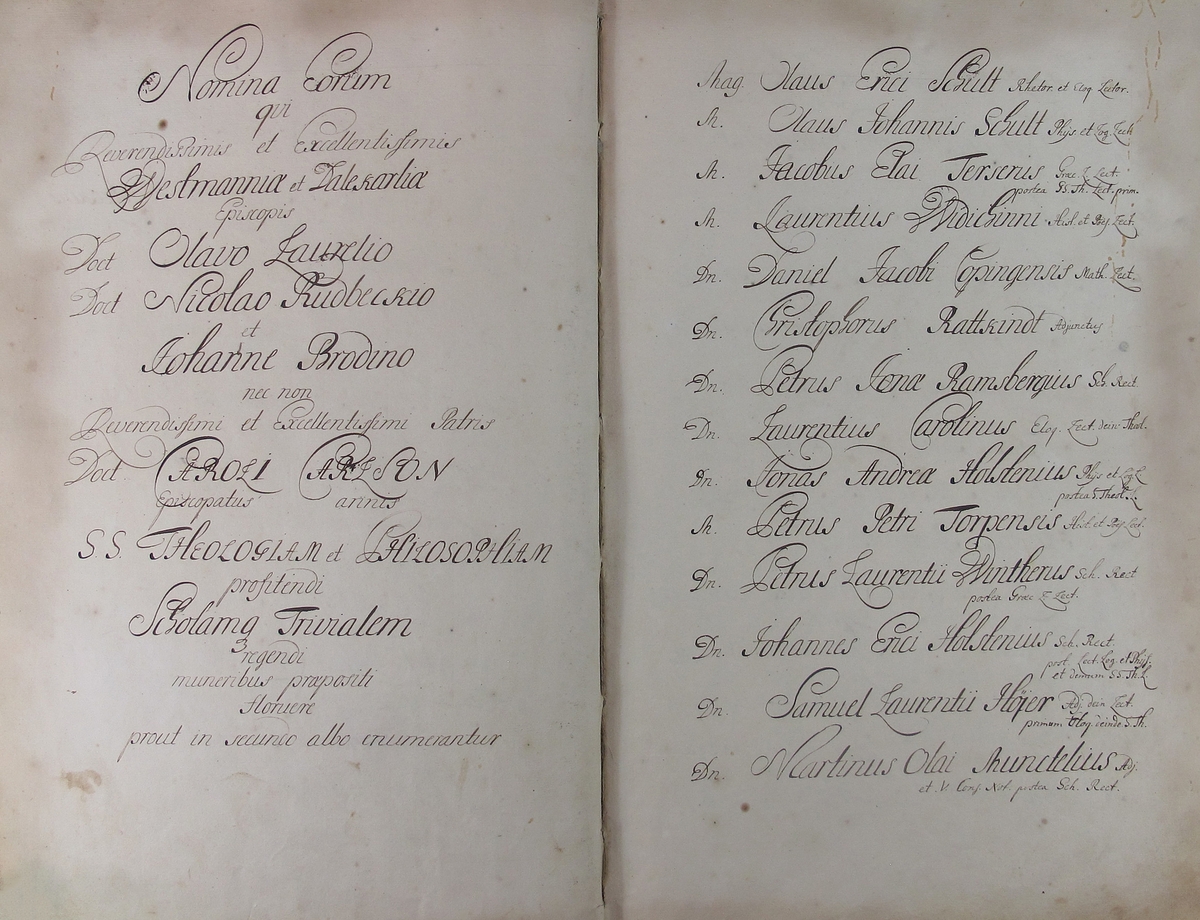 Nomina Eorum
qui
Reverendissimis et Excellentissimis
Westmanniæ et Dalekarliæ
Episcopis
Doct Olavo Laurelio
Doct Nicolao Rudbeckio
et
Johanne Brodino
nec non
Reverendissimi et Excellentissimi Patris
Doct CAROLI CARLSON
Episcopatus annis
S.S. THEOLOGIAM et PHILOSOPHIAM
profitendi
Scholamq Trivialem
regendi
muneribus præpositi
floruere
prout in secundo albo enumerantur
Mag. Olaus Erici Schult Rhetor. et Eloq. Lector.
M. Olaus Johannis Schult Phys. et Log. Lect.
M. Jacobus Elai Terserus Græc. L. Lect.
postea SS. Th. Lect. prim.
M. Laurentius Widichinni Hist. et Poes. Lect.
Dn. Daniel Jacobi Copingensis Math. Lect.
Dn. Christophorus Rattkindt Adjunctus
Dn. Petrus Jonæ Ramsbergius Sch. Rect.
Dn. Laurentius Carolinus Eloq. Lect. dein Theol.
Dn. Jonas Andreæ Holstenius Phys. et Log. L.
postea S. Theol. L.
M. Petrus Petri Torpensis Hist. et Poes. Lect.
Dn. Petrus Laurentii Wintherus Sch. Rect
postea Græc. L. Lect.
Dn. Johannes Erici Holstenius Sch. Rect.
post. Lect. Log. et Phys.
et demum SS. Th. L.
Dn. Samuel Laurentii Höjer Adj. dein Lect.
primum Eloq. deinde S. Th.
Dn. Martinus Olai Munctelius Adj.
et V. Cons. Not. postea Sch. Rect.